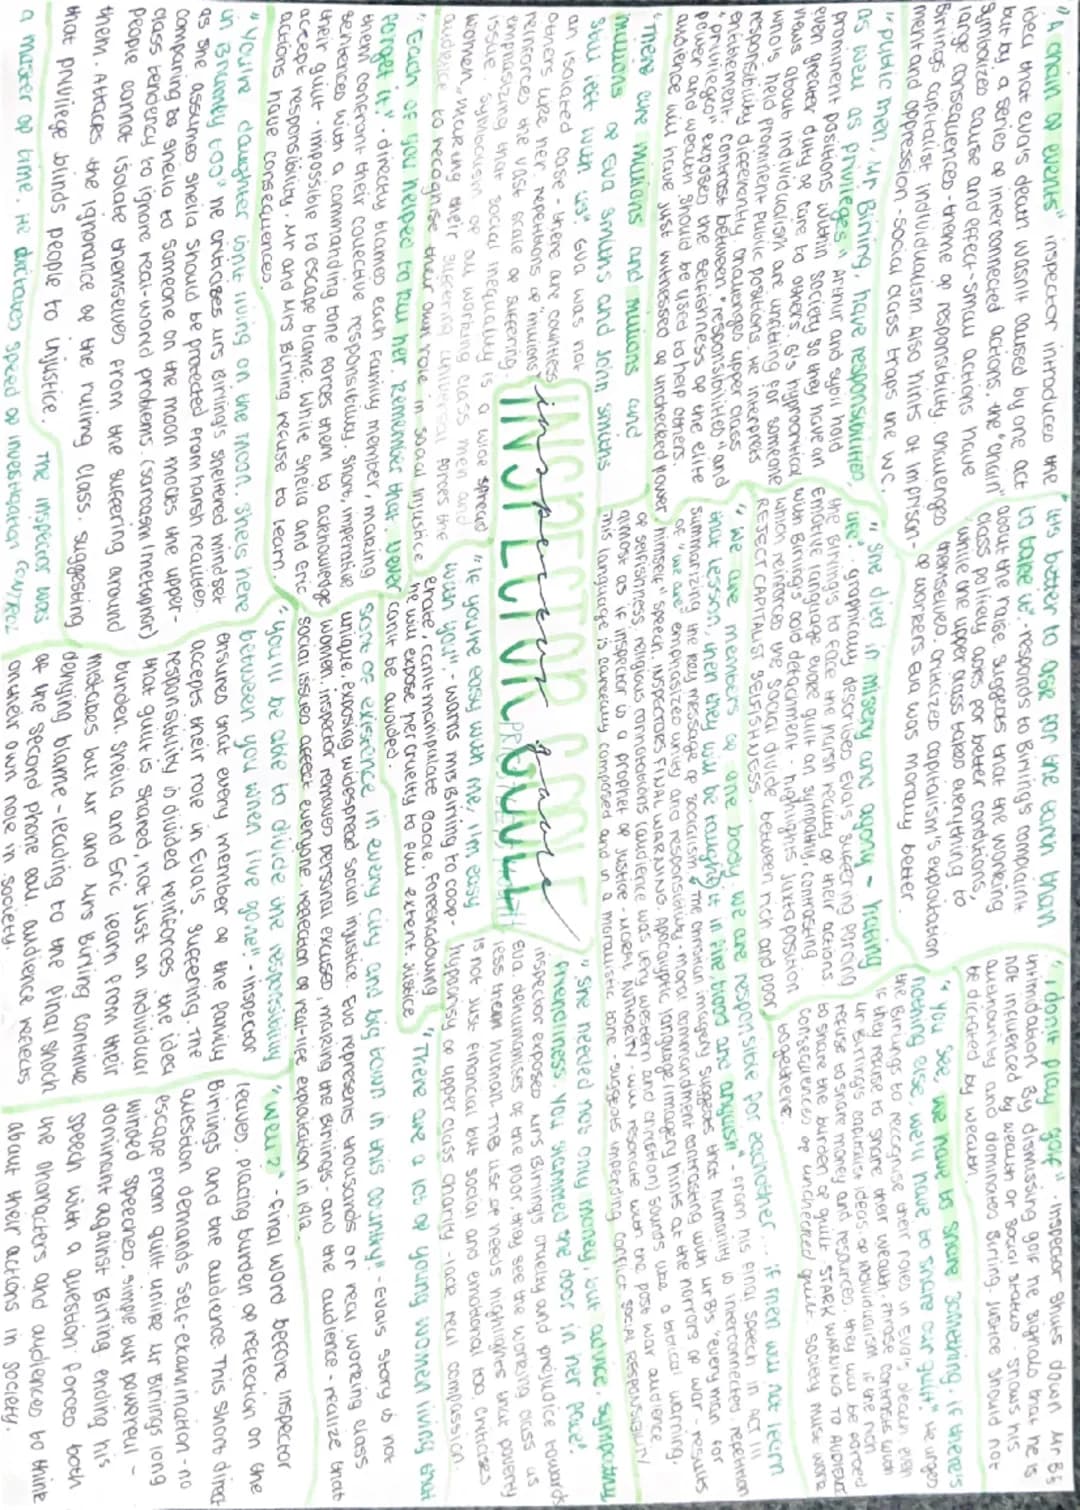 "A chain of events" inspector introduces the
idea that eva's death wasn't caused by one act
but by a series of interconnected actions. the "chain"
symbolizes cause and effect - small actions have
large consequences - theme of responsibility. challenges
Birlings capitalist individualism. Also hints at imprison-
ment and oppression - social class traps the wc.
"public men, Mr Birling, have responsibilities
as well as privileges" Arthur and sybil hold
prominent positions within society so they have an
even greater duty of care to others. B's hypocritical
views about individualism are unfitting for someone
who's held prominent public positions. He interprets
responsibility differently. challenges upper class
entitlement. Contrast between "responsibilities" and
"privileges" exposes the selfishness of the elite
power and wealth should be used to help others.
audience will have just witnessed of unchecked power
"There are millions and millions and
millions of Eva Smiths and John Smiths
still left with us" Eva was not
an isolated case - there are countless
others like her. repetitions of "millions"
reinforces the vast scale of suffering
emphasizing that social inequality is a wide spread
issue. symbolism of all working class men and
women, making their suffering universal forces the
audience to recognise their own role in social injustice
"Each of you helped to kill her. Remember that. Never
forget it" - directly blames each family member, making
them confront their collective responsibility. Short, imperative
sentences with a commanding tone forces them to acknowledge
their guilt - impossible to escape blame. While Sheila and Eric
accept responsibility, Mr and Mrs Birling refuse to learn
actions have consequences.
"Youre daughter isn't living on the moon. She's here
in Brumley too" he criticises Mrs Birling's sheltered mindset
as she assumes sheila should be protected from harsh realities.
comparing to sheila to someone on the moon mocks the upper-
class tendency to ignore real-world problems. (sarcasm/metaphor)
people cannot isolate themselves from the suffering around
them. Attacks the ignorance of the ruling class, suggesting
that privilege blinds people to injustice.
The inspector was
a master of time. He dictates speed of investigation
inspector goole
INSPECTOR GOOLE
"its better to ask for the earth than
to take it". responds to Birling's complaint
about the raise. suggests that the working
class politely asks for better conditions,
while the upper class takes everything to
themselves. criticizes capitalism's exploitation
of workers. Eva was morally better.
"She died in misery and agony - hating
life". graphically describes Eva's suffering forcing
the Birlings to face the harsh reality of their actions
Emotive language evoke guilt and sympathy, contrasting
with Birling's cold detachment - highlights juxtaposition
which reinforces the social divide between rich and poor
REJECT CAPITALIST SELFISHNESS.
"We are members of one body. We are responsible for eachother ... if men will not learn
that lesson, then they will be taught it in fire, blood and anguish" - from his final speech in ACT III
summarizing the key message of socialism the communal imagery suggests that humanity is interconnected. repetition
of "we are" emphasizes unity and responsibility moral commandment contrasting with Mr B's "every man for
himself" speech. INSPECTORS FINAL WARNING. Apocalyptic language/imagery hints at the horrors of war - results
of selfishness religious connotations (audience was very western and christian) sounds like a biblical warning,
almost as if inspector is a prophet of justice - MORAL AUTHORITY - will resonate with the post war audience
his language is carefully composed and in a moralistic tone - suggests needing
SOCIAL RESPONSIBILITY
"If you're easy with me, I'm easy
with you". - warns Mrs Birling to coop
erate, can't manipulate Goole. Foreshadowing
he will expose her cruelty to full extent. Justice
can't be avoided.
"She needed not only money but advice, sympathy
friendliness. You slammed the door in her face".
inspector exposes Mrs Birling's cruelty and prejudice towards
Eva dehumanises of the poor, they see the working class as
less than human. The use of needs highlights that poverty
is not just financial but social and emotional too. Criticises
hypocrisy of upper class charity - lack real compassion.
"There are a lot of young women living that
sort of existence in every city and big town in this country" - Eva's story is not
unique, exposing widespread social injustice. Eva represents thousands of real working class
women. inspector removes personal excuses, making the Birlings and the audience - realize that
social issues affect everyone. reflection of real-life exploitation in 1912.
"You'll be able to divide the responsibility
between you when I've gone" - Inspector
ensures that every member of the family
accepts their role in Eva's suffering. The
responsibility is divided reinforces the idea
that guilt is shared, not just an individual
burden. Sheila and Eric learn from their
mistakes but Mr and Mrs Birling continue
denying blame - leading to the final shock
of the second phone call. audience reflects
on their own role in society.
"I don't play golf". Inspector shuts down Mr B's
intimidation. By dismissing golf he signals that he is
not influenced by wealth or social status - shows his
authority and dominates Birling. Justice should not
be dictated by wealth.
"You see, we have to share something. if there's
nothing else, we'll have to share our guilt". He urges
the Birlings to recognise their roles in Eva's death even
if they refuse to share their wealth. Phrase contrasts with
Mr Birling's capitalist ideas of individualism if the rich
refuse to share money and resources, they will be forced
to share the burden of guilt. STARK WARNING TO AUDIENCE
Consequences of unchecked guilt. Society must work
together.
"Well?" - final word before inspector
leaves, placing burden of reflection on the
Birlings and the audience. This short direct
question demands self-examination - no
escape from guilt. Unlike Mr Birling's long
winded speeches, simple but powerful -
dominant against Birling ending his
speech with a question forces both
the characters and audiences to think
about their actions in society.